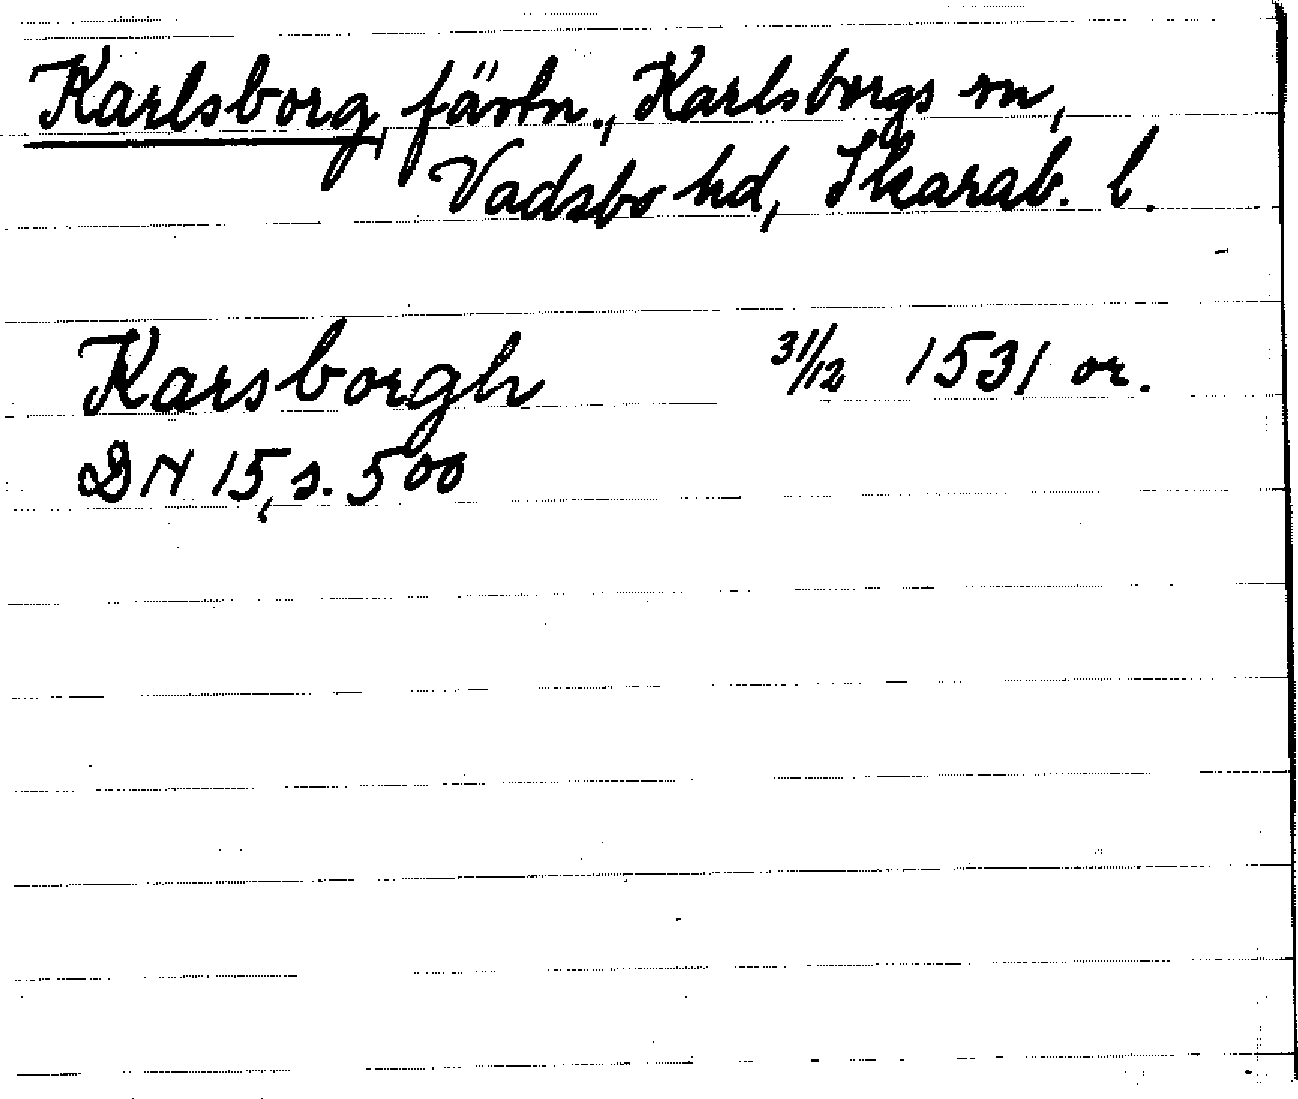 Karlsborg, fästn., Karlsborgs sn,
Vadsbo hd, Skarab. l.
Karsborgh 31/12 1531 or.
DN 15, s. 500